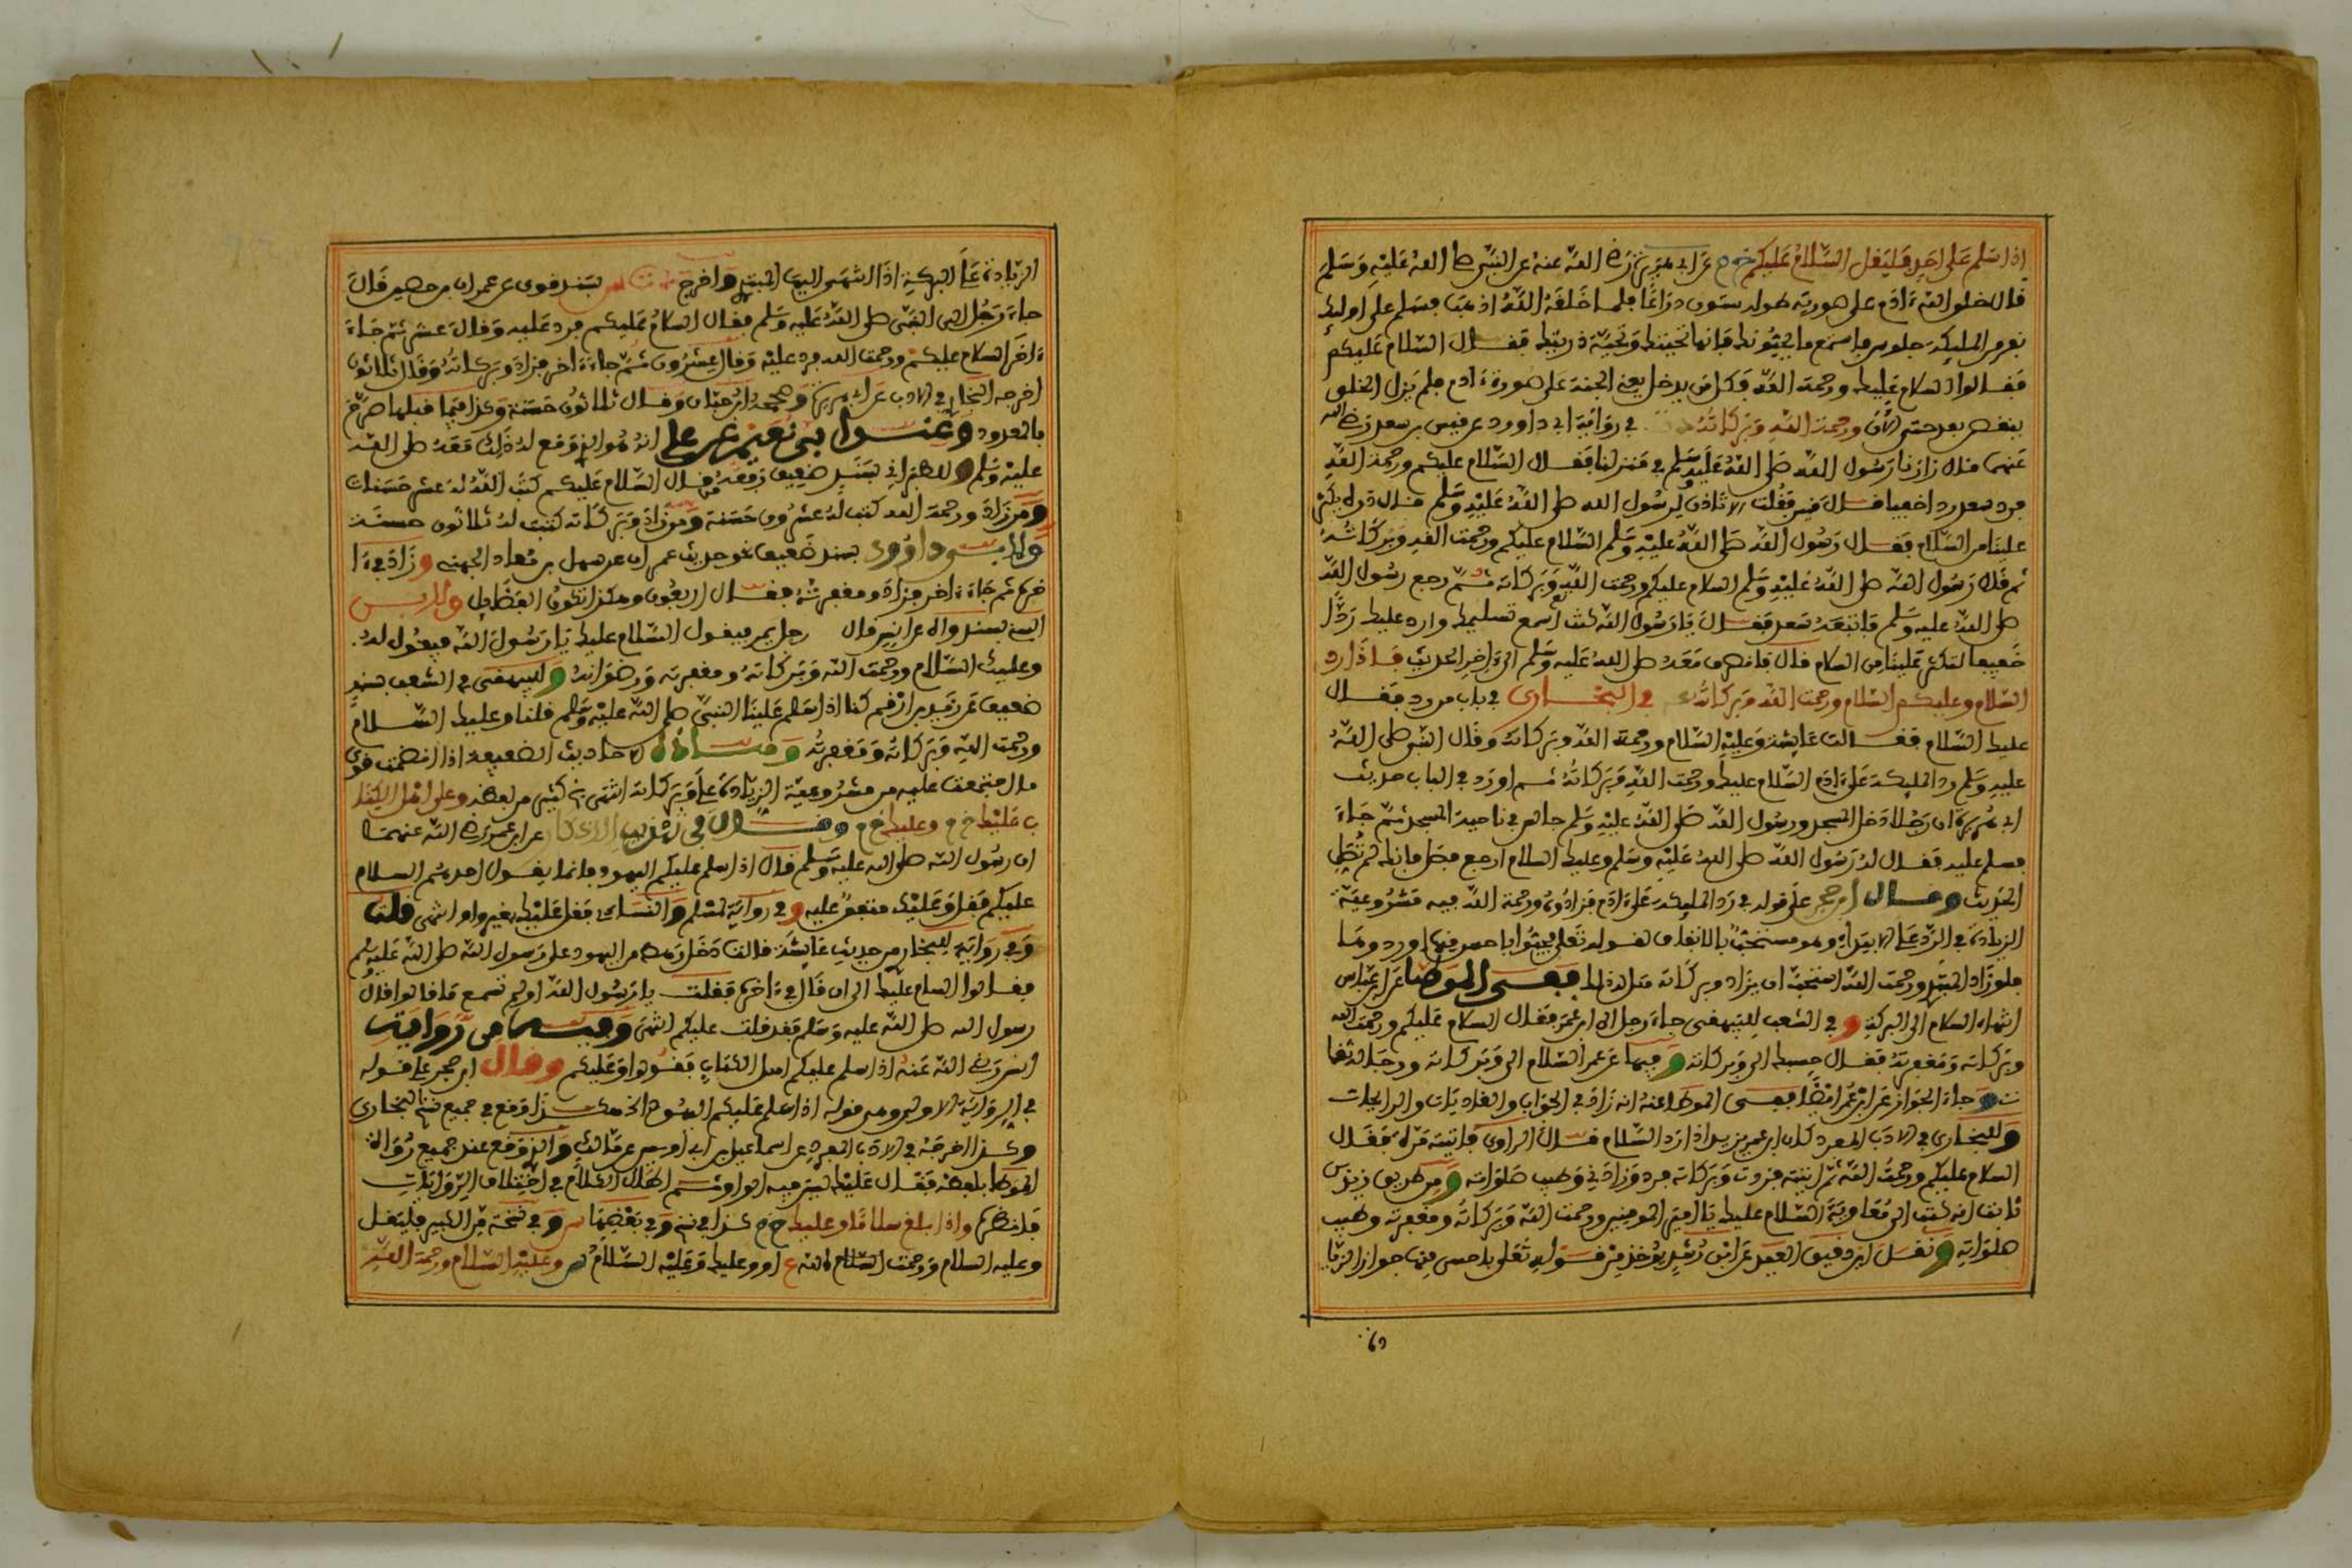 اذا سلم على احد فليقل السلام عليكم خ م عن ابي هريرة رضي الله عنه عن النبي صلى الله عليه وسلم
قال خلق الله ءادم على صورته طوله ستون ذراعا فلما خلقه الله اذهب فسلم على اولئك
نفر من المليكة جلوس فاستمع ما يحيونك فانها تحيتك وتحية ذريتك فقال السلام عليكم
فقالوا السلام عليك ورحمة الله فكل من يدخل يعني الجنة على صورة ءادم فلم يزل الخلق
ينقص بعد حتى الآن ورحمة الله وبركاته في رواية ابي داوود عن قيس بن سعد رضي الله
عنهما قال زارنا رسول الله صلى الله عليه وسلم في منزلنا فقال السلام عليكم ورحمة الله
فرد سعد ردا خفيا قال قيس فقلت الا تاذن لرسول الله صلى الله عليه وسلم قال ذره يكثر
علينا من السلام فقال رسول الله صلى الله عليه وسلم السلام عليكم ورحمت الله وبركاته
ثم قال رسول الله صلى الله عليه وسلم السلام عليكم ورحمت الله وبركاته ثم رجع رسول الله
صلى الله عليه وسلم فاتبعه سعد فقال يا رسول الله كنت اسمع تسليمك وارد عليك ردا
خفيفا لتكثر علينا من السلام قال فانصرف معه صلى الله عليه وسلم الى ءاخر الحديث فاذا رد
السلام وعليكم السلام ورحمت الله وبركاته في البخاري في باب من رد فقال
عليك السلام فقالت عايشة وعليه السلام ورحمة الله وبركاته وقال النبي صلى الله
عليه وسلم رد المليكة على ءادم السلام عليك ورحمت الله وبركاته ثم اورد في الباب حديث
ابي هريرة ان رجلا دخل المسجد ورسول الله صلى الله عليه وسلم جالس في ناحية المسجد ثم جاء
فسلم عليه فقال له رسول الله صلى الله عليه وسلم وعليك السلام ارجع فصل فانك لم تصل
الحديث وقال ابن حجر على قوله في رد المليكة على ءادم فزادوه ورحمة الله فيه مشروعية
الزيادة في الرد على الابتداء وهو مستحب بالاتفاق لقوله تعلى فحيوا باحسن منها او ردوها
فلو زاد المبتدي ورحمت الله استحب ان يزاد وبركاته ففي الموطا عن ابن عباس
انتهاء السلام الى البركة و في الشعب للبيهقي جاء رجل الى ابن عمر فقال السلام عليكم ورحمت الله
وبركاته ومغفرته فقال حسبك الى وبركاته و فيها عن عمر السلام الى وبركاته ورجاله ثقات
وجاء الجواز عن ابن عمر ايضا ففي الموطا عنه انه زاد في الجواب والغاديات والرايحات
وللبخاري في الادب المفرد كان ابن عمر يزيد اذا رد السلام قال الراوي فاتيته مرة فقال
السلام عليكم ورحمت الله ثم اتيته فزدت وبركاته فرد وزاد في وطيب صلواته و من طريق زيد بن
ثابت انه كتب الى معاوية السلام عليك يا امير المومنين ورحمت الله وبركاته ومغفرته وطيب
صلواته و نقل ابن دقيق العيد عن ابن رشد يوخذ من قوله تعلى باحسن منها جواز الزيا
الزيادة على البركة اذا انتهى اليها المبتدي واخرج بسند قوي عن عمران بن حصين قال
جاء رجل الى النبي صلى الله عليه وسلم فقال السلام عليكم فرد عليه وقال عشر ثم جاء
ءاخر السلام عليكم ورحمت الله فرد عليه وقال عشرون ثم جاء ءاخر فزاد وبركاته وقال ثلاثون
اخرجه البخاري في الادب عن ابي هريرة وصححه ابن حبان وقال ثلاثون حسنة وكذا فيما قبلها صرح
بالعدود وعند ابي نعيم عن علي انه هو الذي وقع له ذلك معه صلى الله
عليه وسلم و للطبراني بسند ضعيف رفعه من قال السلام عليكم كتب الله له عشر حسنات
ومن زاد ورحمة الله كتب له عشرون حسنة ومن زاد وبركاته كتبت له ثلاثون حسنة
ولابي داوود بسند ضعيف نحو حديث عمران عن سهل بن معاذ الجهني وزاد في ءا
خره ثم جاء ءاخر فزاد ومغفرته فقال اربعون وهكذا تكون الفضايل ولابن
السني بسند واه عن انس قال رجل يمر فيقول السلام عليك يا رسول الله فيقول له
وعليك السلام ورحمت الله وبركاته ومغفرته ورضوانه و للبيهقي في الشعب بسند
ضعيف عن زيد بن ارقم كنا اذا سلم علينا النبي صلى الله عليه وسلم قلنا وعليك السلام
ورحمت الله وبركاته ومغفرته وهذه الاحاديث الضعيفة اذا انضمت قوي
ما اجتمعت عليه من مشروعية الزيادة على وبركاته انتهى كثير من لفظه وعلى اهل الكتا
ب عليك خ م وعليك خ م وقال في غريب الاذكار عن ابن عمر رضي الله عنهما
ان رسول الله صلى الله عليه وسلم قال اذا سلم عليكم اليهود فانما يقول احدهم السام
عليكم فقل وعليك متفق عليه و في رواية لمسلم والنساي فقل عليك بغير واو انتهى قلت
وفي رواية للبخاري من حديث عايشة قالت دخل رهط من اليهود على رسول الله صلى الله عليه وسلم
فقالوا السام عليك الى ان قال في ءاخره فقلت يا رسول الله اولم تسمع ما قالوا قال
رسول الله صلى الله عليه وسلم فقد قلت عليكم انتهى وفيه من رواية
انس رضي الله عنه اذا سلم عليكم اهل الكتاب فقولوا وعليكم وقال ابن حجر على قوله
في الرواية الاولى وهي قوله اذا سلم عليكم اليهود الخ هكذا وقع في جميع نسخ البخاري
وكذا اخرجه في الادب المفرد عن اسماعيل بن ابي اويس عن مالك والذي وقع عند جميع رواة
الموطا بلفظ فقل عليك ليس فيه الواو ثم اطال الكلام في اختلاف الروايات
فانظره واذا بلغ سلاما وعليك خ م كذا في نسخ وفي بعضها س و في نسخة من الكبير فليقل
وعليه السلام ورحمت الله ع او وعليك وعليه السلام س وعليه السلام ورحمة الله